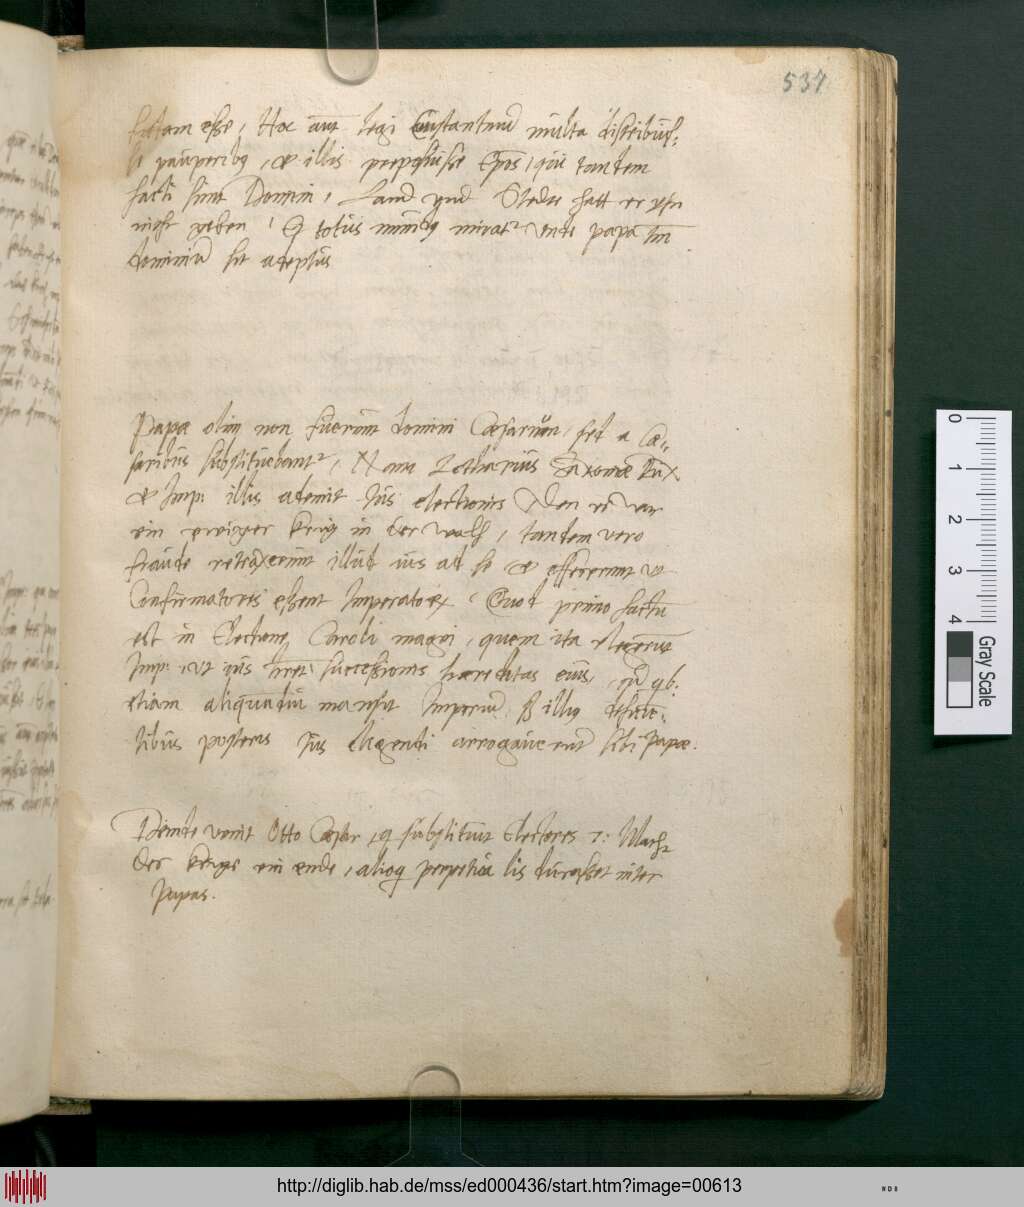 537
factam esse, Hoc aut legi Constantinū multa distribuis-
se pauperibꝫ, & illis preposuisse Epos, qui tandem
facti sunt Domini, Land vnd Stedte hatt er yhn
nicht geben, totus mundꝫ mirat vnde papa tm̄
dominiū sit adeptus
Papae olim non fuerunt domini Caesarum, sed a Cae-
saribus substituebant, Nam Lotharius Saxoniae Dux
& Imp: illis ademit Ius electionis Den er war
ein ewiger krig in der walh, tandem vero
fraude retraxerunt illud ius ad se & effecerunt vt
Confirmatores essent Imperator Quod primo factū
est in Electione Caroli magni, quem ita elegerunt
Imp: vt ius successionis haereditas eius,
etiam aliquandiu mansit Imperiū, illis defunc-
tibus posteris Ius eligendi arrogauerunt sibi Papae.
Deinde venit Otto Caesar, q substituit Electores 7: Macht
der krige ein ende, alioq perpetua lis durasset inter
Papas.
0
1
2
3
4
Gray Scale
http://diglib.hab.de/mss/ed000436/start.htm?image=00613